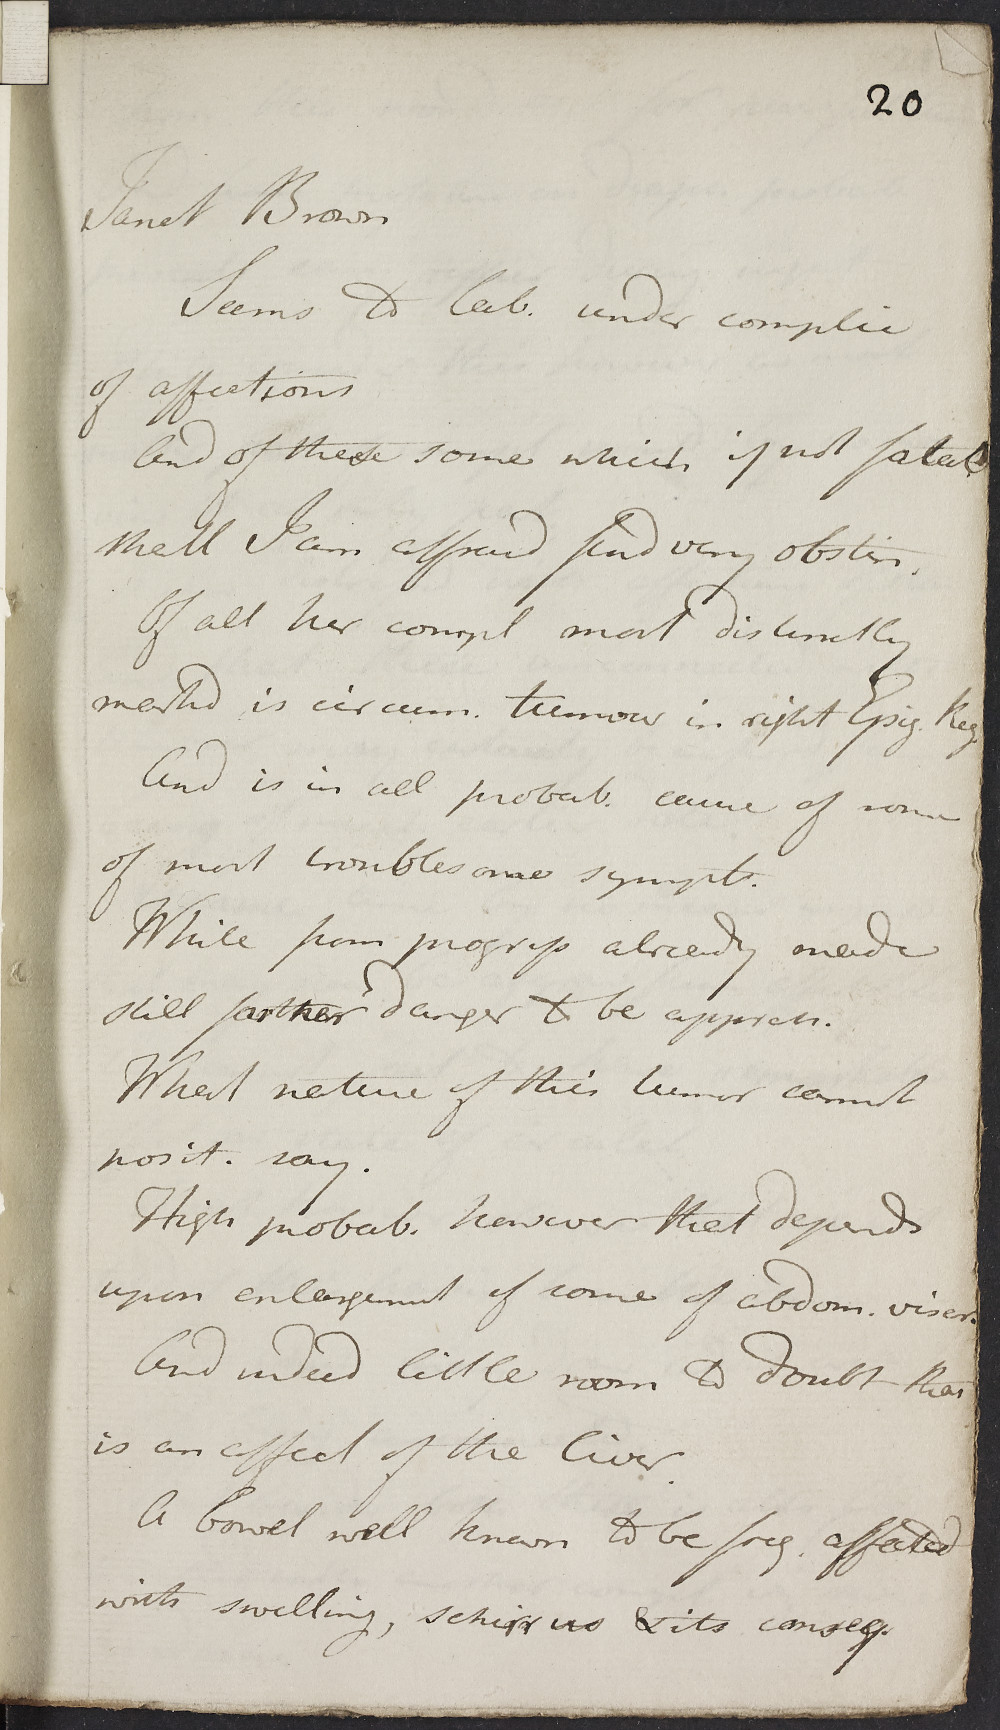 20
Janet Brown
Seems to lab. under complic
of affections
And of these some which if not fatal
shall I am affraid find very obstin.
Of all her compl most distinctly
markd is circum. tumour in right Epig. Reg.
And is in all probab. cause of some
of most troublesome sympt.
While from progress already made
still farther danger to be appreh.
What nature of this tumor cannot
posit. say.
High probab. however that depends
upon enlargement of some of abdom. viscer.
And indeed little room to doubt that
is an affect of the Liver.
A bowel well known to be freq. affected
with swelling, schirrus & its conseq.